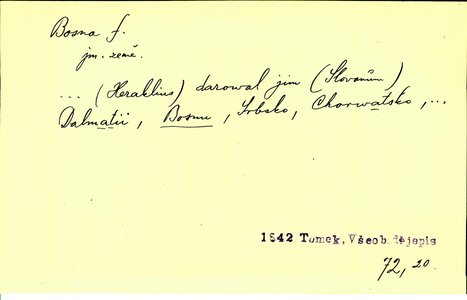 Bosna f.
jm. země.
... (Heraklius) darowal jim (Slovanům)
Dalmatii, Bosnu, Srbsko, Chorwatsko, ...
1842 Tomek, Všeob. dějepis
72, 20.